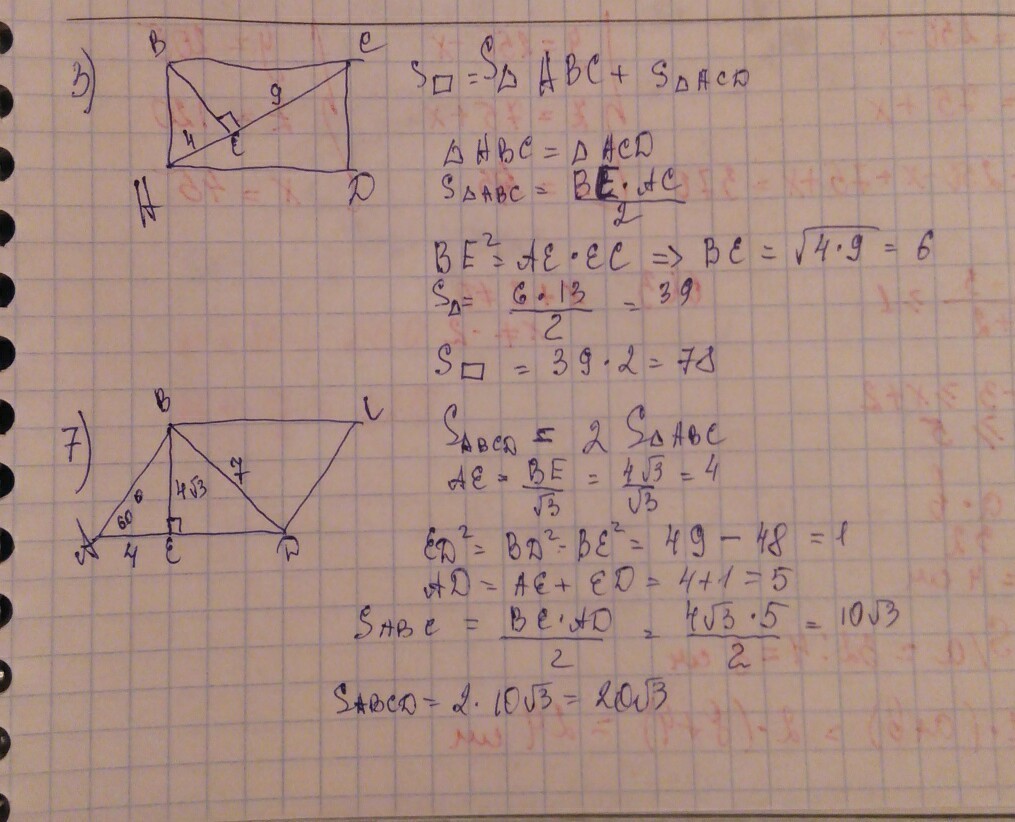 3)
B C
9
4 E
A D
S□ = S△ ABC + S△ACD
△ABC = △ACD
S△ABC = BE·AC / 2
BE² = AE·EC => BE = √4·9 = 6
S△ = 6·13 / 2 = 39
S□ = 39·2 = 78
7)
B C
4√3 7
60°
A 4 E D
S ABCD = 2 S△ABC
AE = BE / √3 = 4√3 / √3 = 4
ED² = BD² - BE² = 49 - 48 = 1
AD = AE + ED = 4+1 = 5
S ABC = BE·AD / 2 = 4√3·5 / 2 = 10√3
S ABCD = 2·10√3 = 20√3